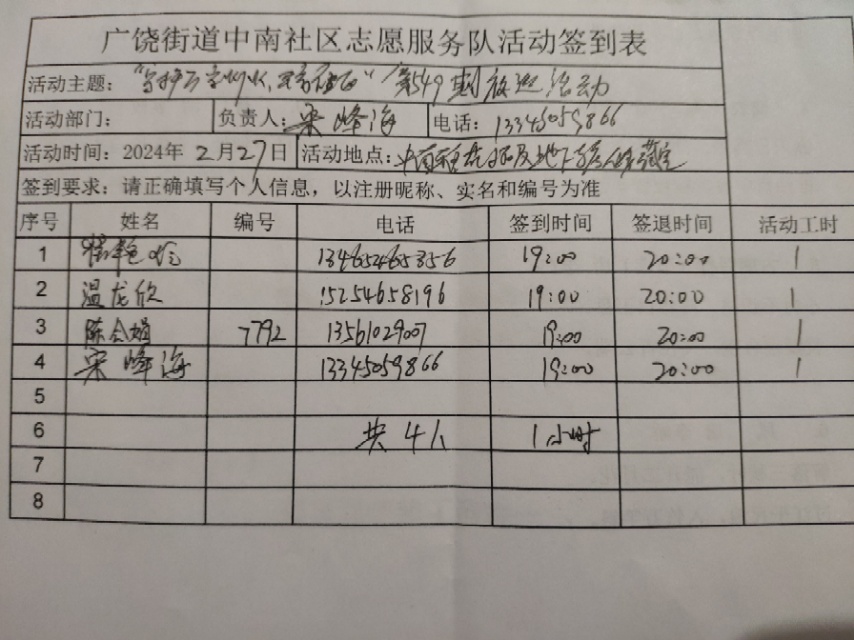 广饶街道中南社区志愿服务队活动签到表
活动主题: 第549期 活动
活动部门: 负责人: 宋峰海 电话: 13345059866
活动时间: 2024年 2月27日 活动地点: 中南 及地下
签到要求: 请正确填写个人信息，以注册昵称、实名和编号为准
序号 姓名 编号 电话 签到时间 签退时间 活动工时
1 13465465356 19:00 20:00 1
2 温龙欣 15254658196 19:00 20:00 1
3 陈会娟 7792 13561029007 19:00 20:00 1
4 宋峰海 13345059866 19:00 20:00 1
5
6 共4人 1小时
7
8